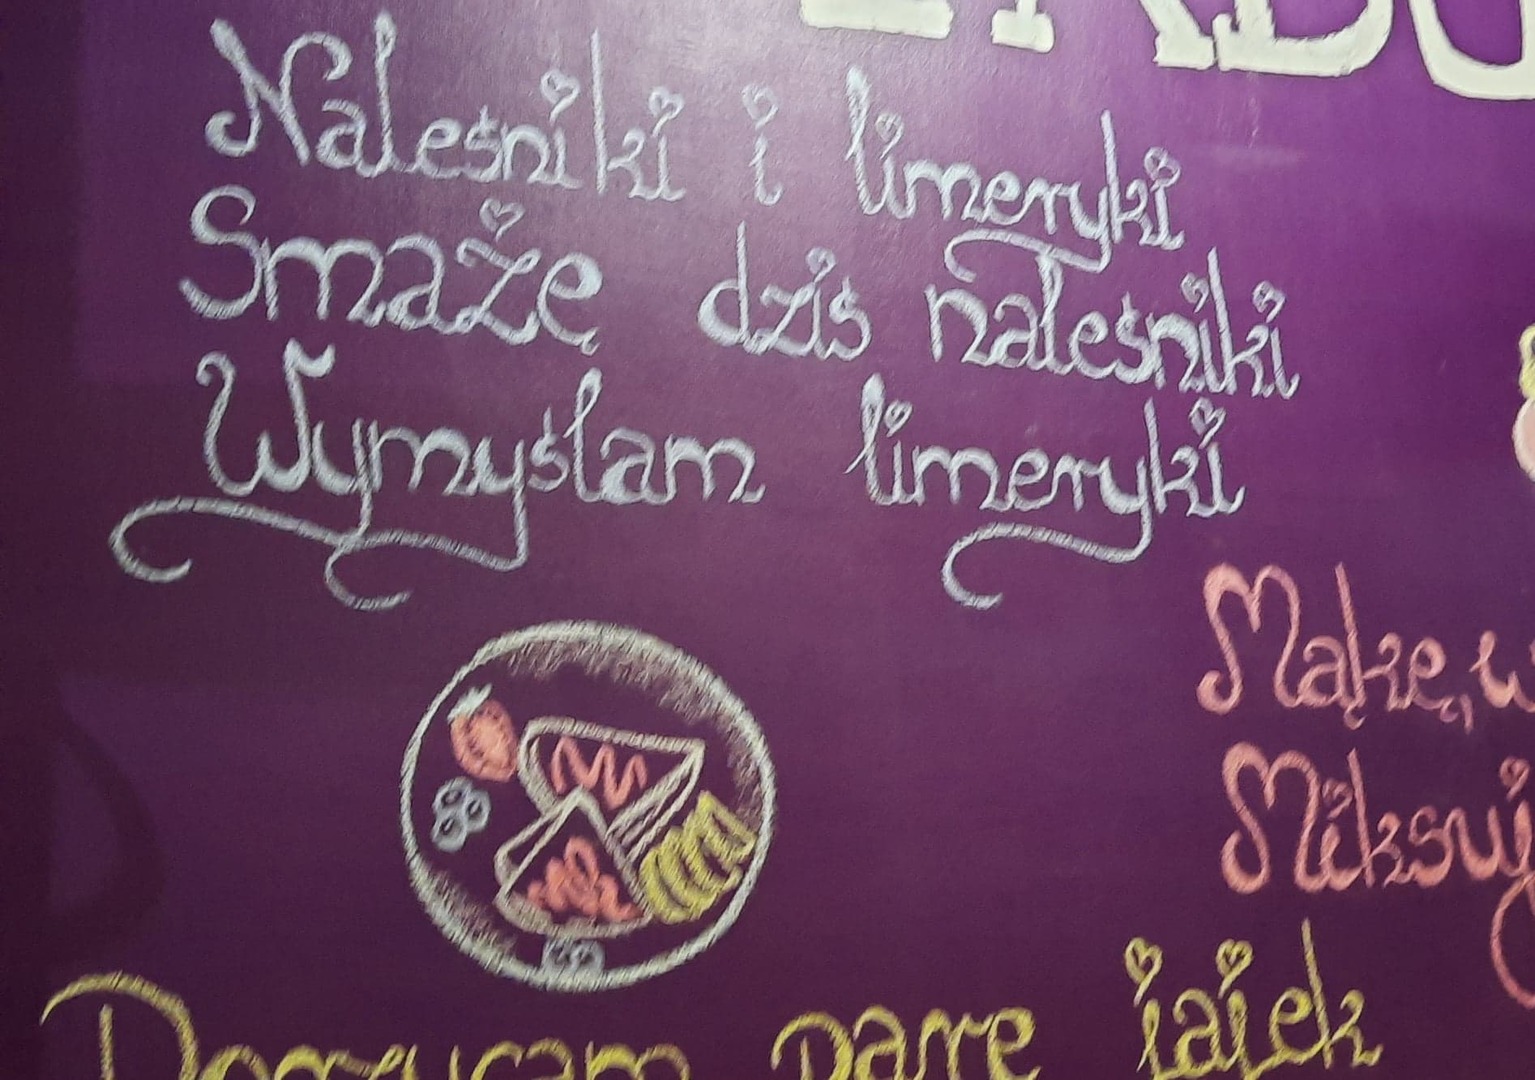 Naleśniki i limeryki
Smażę dziś naleśniki
Wymyślam limeryki
Mąkę,
Miksuj
Dorzucam parę jajek